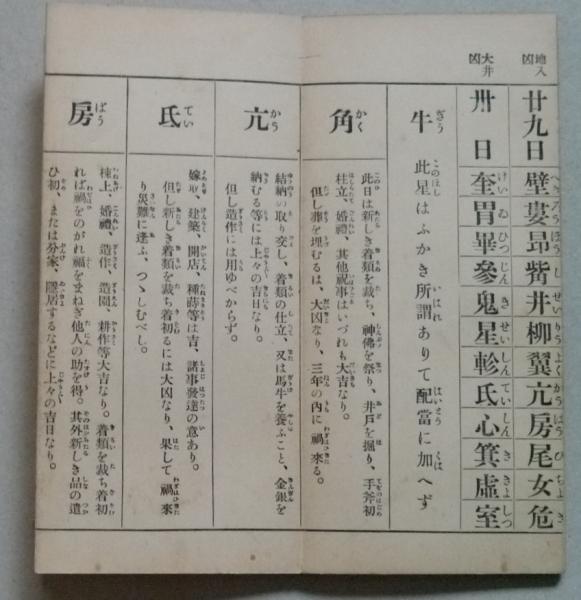 地入凶
廿九日 壁婁昴觜井柳翼亢房尾女危
大井凶
卅日 奎胃畢參鬼星軫氐心箕虛室
牛 此星はふかき所謂ありて配當に加へず
角 此日は新しき着類を裁ち、神佛を祭り、井戸を掘り、手斧初
柱立、婚禮、其他祝事はいづれも大吉なり。
但し葬を埋むるは、大凶なり、三年の內に禍來る。
亢 結納の取り交し、着類の仕立、又は馬牛を養ふこと、金銀を
納むる等には上々の吉日なり。
但し造作には用ゆべからず。
氐 嫁取、建築、開店、種蒔等は吉、諸事發達の意あり。
但し新しき着類を裁ち着初るには大凶なり、果して禍來
り災難に逢ふ、つゝしむべし。
房 棟上、婚禮、造作、造園、耕作等大吉なり。着類を裁ち着初
れば禍をのがれ福をまねぎ他人の助を得。其外新しき品の遣
ひ初、または分家、隱居するなどに上々の吉日なり。